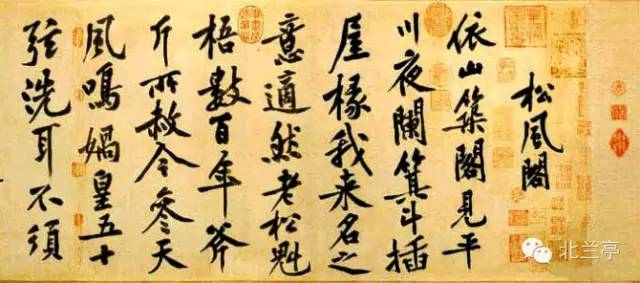 松風閣
依山築閣見平
川夜闌箕斗插
屋椽我來名之
意適然老松魁
梧數百年斧
斤所赦今參天
風鳴媧皇五十
弦洗耳不須
北兰亭